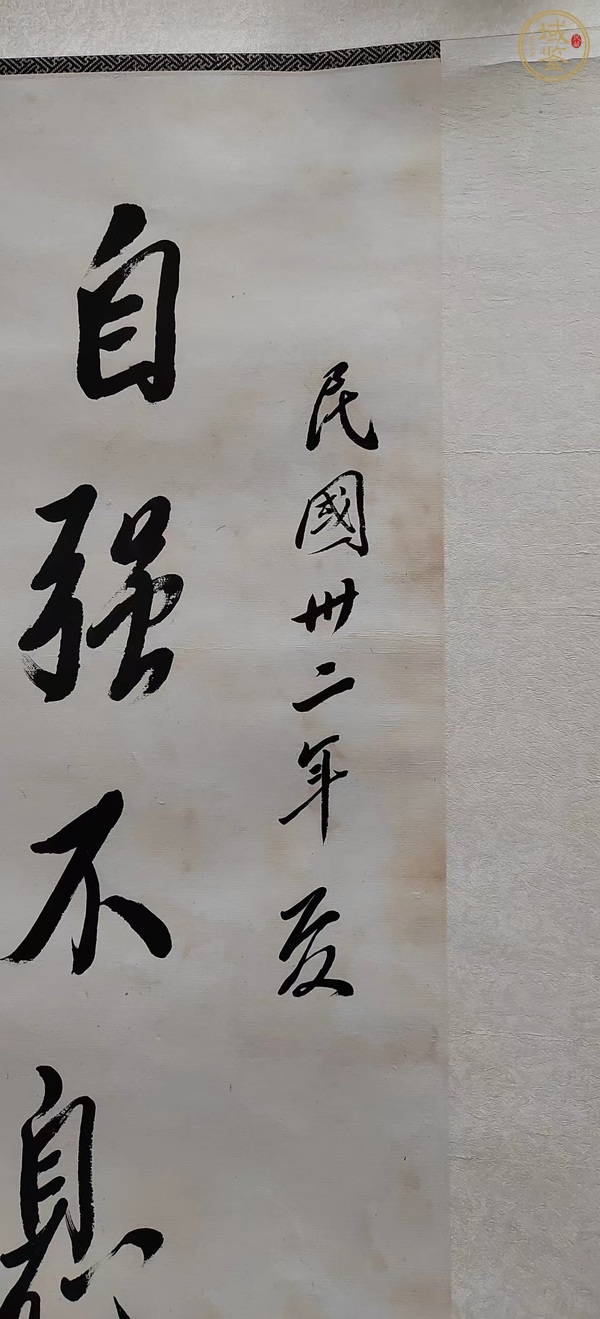 民國卅二年夏
自强不息
域鉴